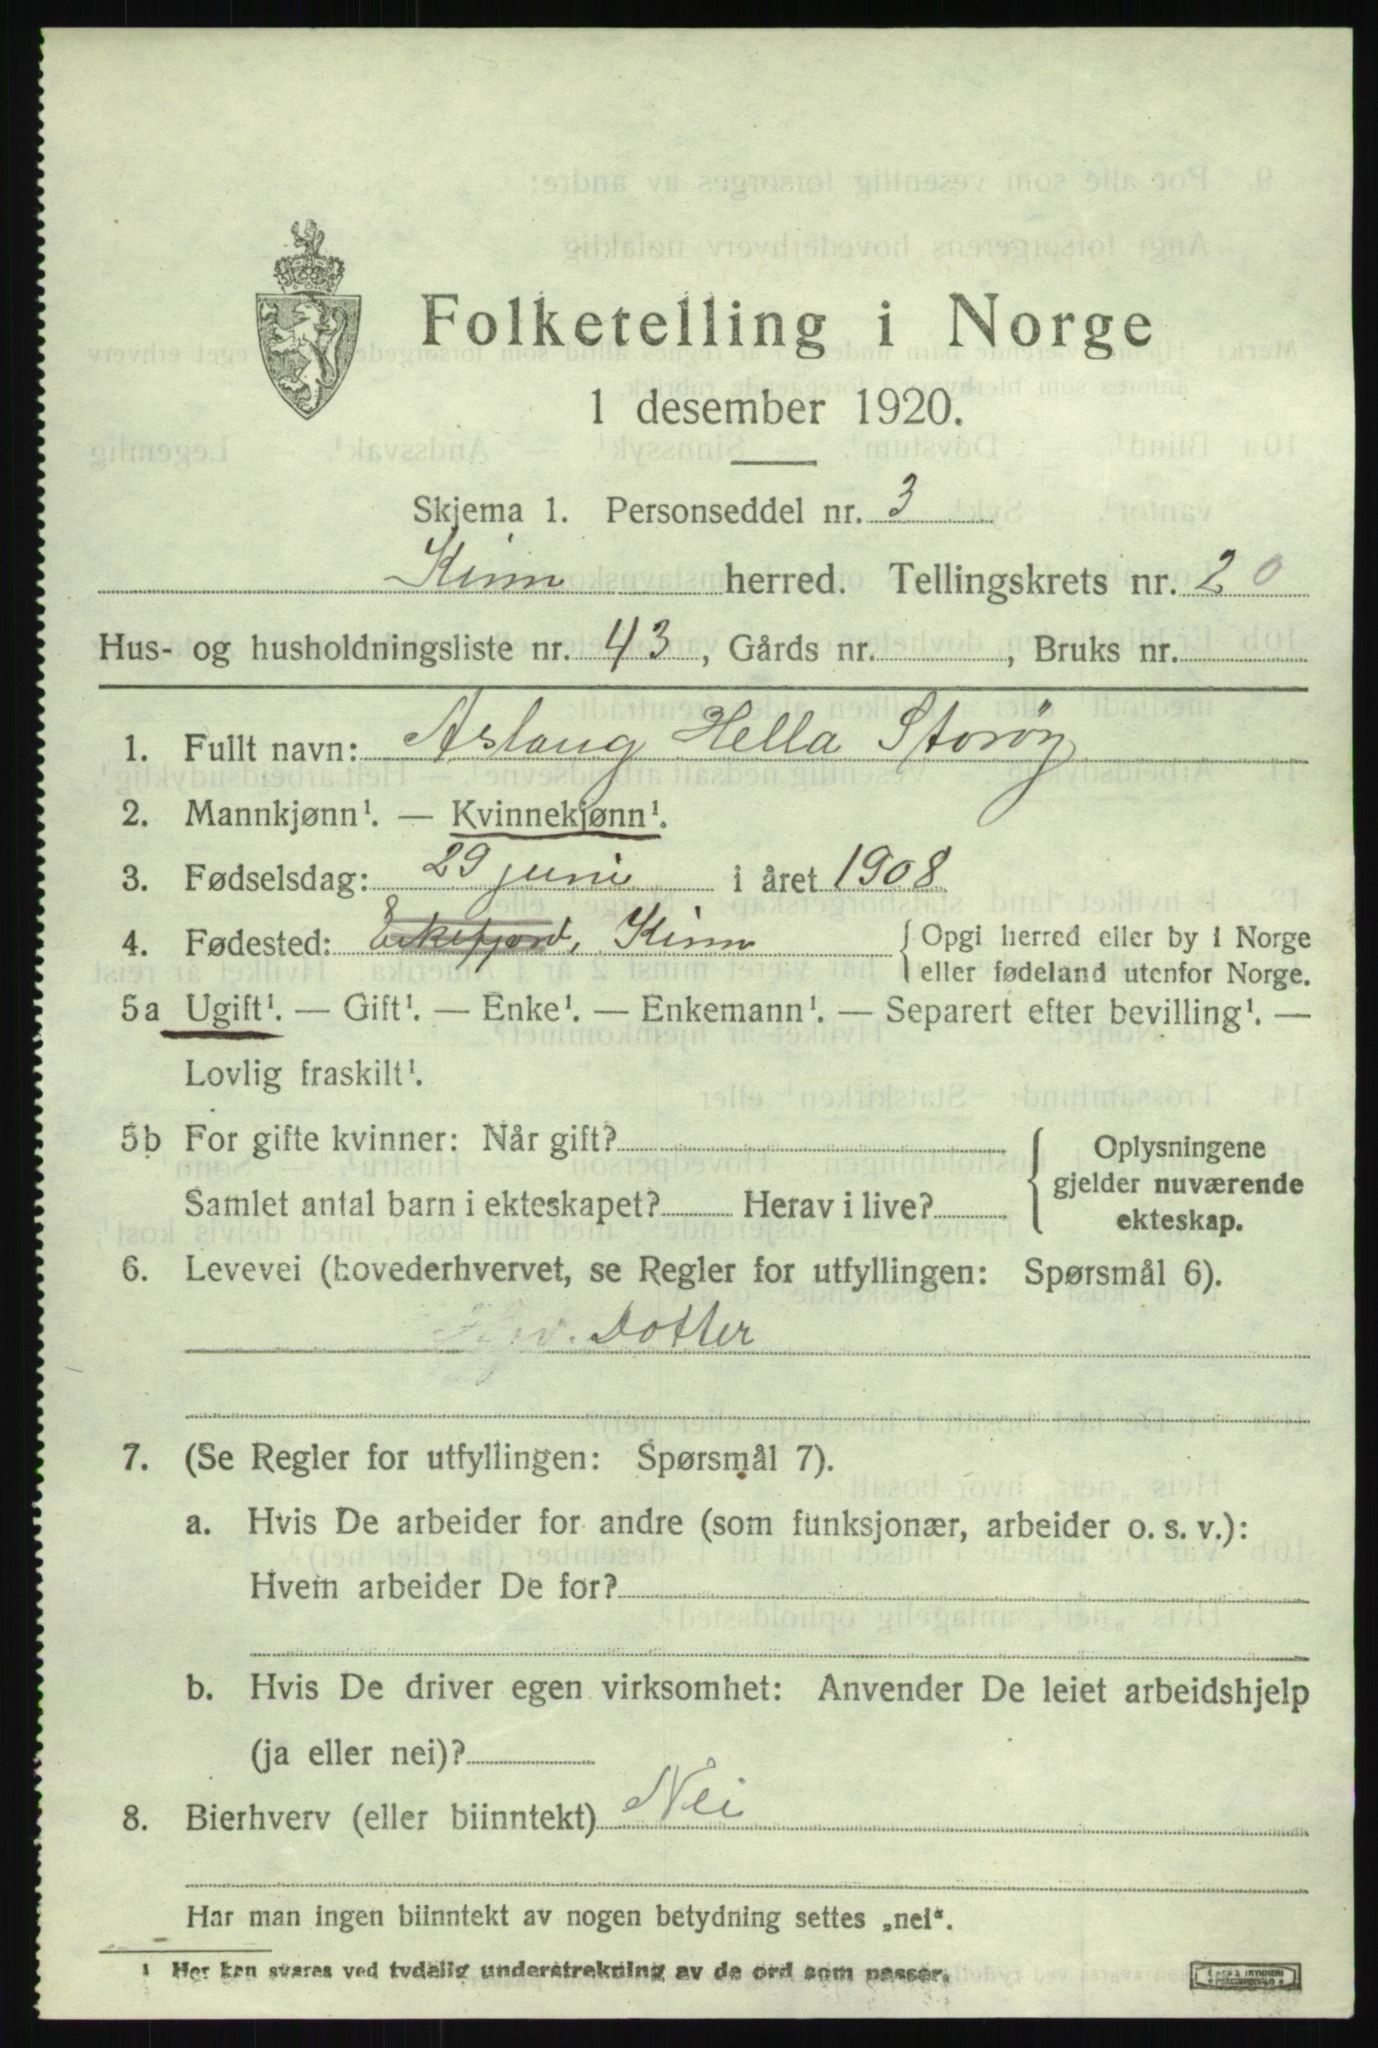 Folketelling i Norge
1 desember 1920.
Skjema 1. Personseddel nr. 3
Kinn herred. Tellingskrets nr. 20
Hus- og husholdningsliste nr. 43, Gårds nr. , Bruks nr.
1. Fullt navn: Aslaug Hella Storøy
2. Mannkjønn¹. — Kvinnekjønn¹.
3. Fødselsdag: 29 juni i året 1908
4. Fødested: Eikefjord, Kinn {Opgi herred eller by i Norge
eller fødeland utenfor Norge.
5a Ugift¹. — Gift¹. — Enke¹. — Enkemann¹. — Separert efter bevilling¹. —
Lovlig fraskilt¹.
5b For gifte kvinner: Når gift? { Oplysningene
gjelder nuværende
Samlet antal barn i ekteskapet? Herav i live? ekteskap.
6. Levevei (hovederhvervet, se Regler for utfyllingen: Spørsmål 6).
Dotter
7. (Se Regler for utfyllingen: Spørsmål 7).
a. Hvis De arbeider for andre (som funksjonær, arbeider o. s. v.):
Hvem arbeider De for?
b. Hvis De driver egen virksomhet: Anvender De leiet arbeidshjelp
(ja eller nei)?
8. Bierhverv (eller biinntekt) Nei
Har man ingen biinntekt av nogen betydning settes „nei“.
¹ Her kan svares ved tydelig understrekning av de ord som passer.